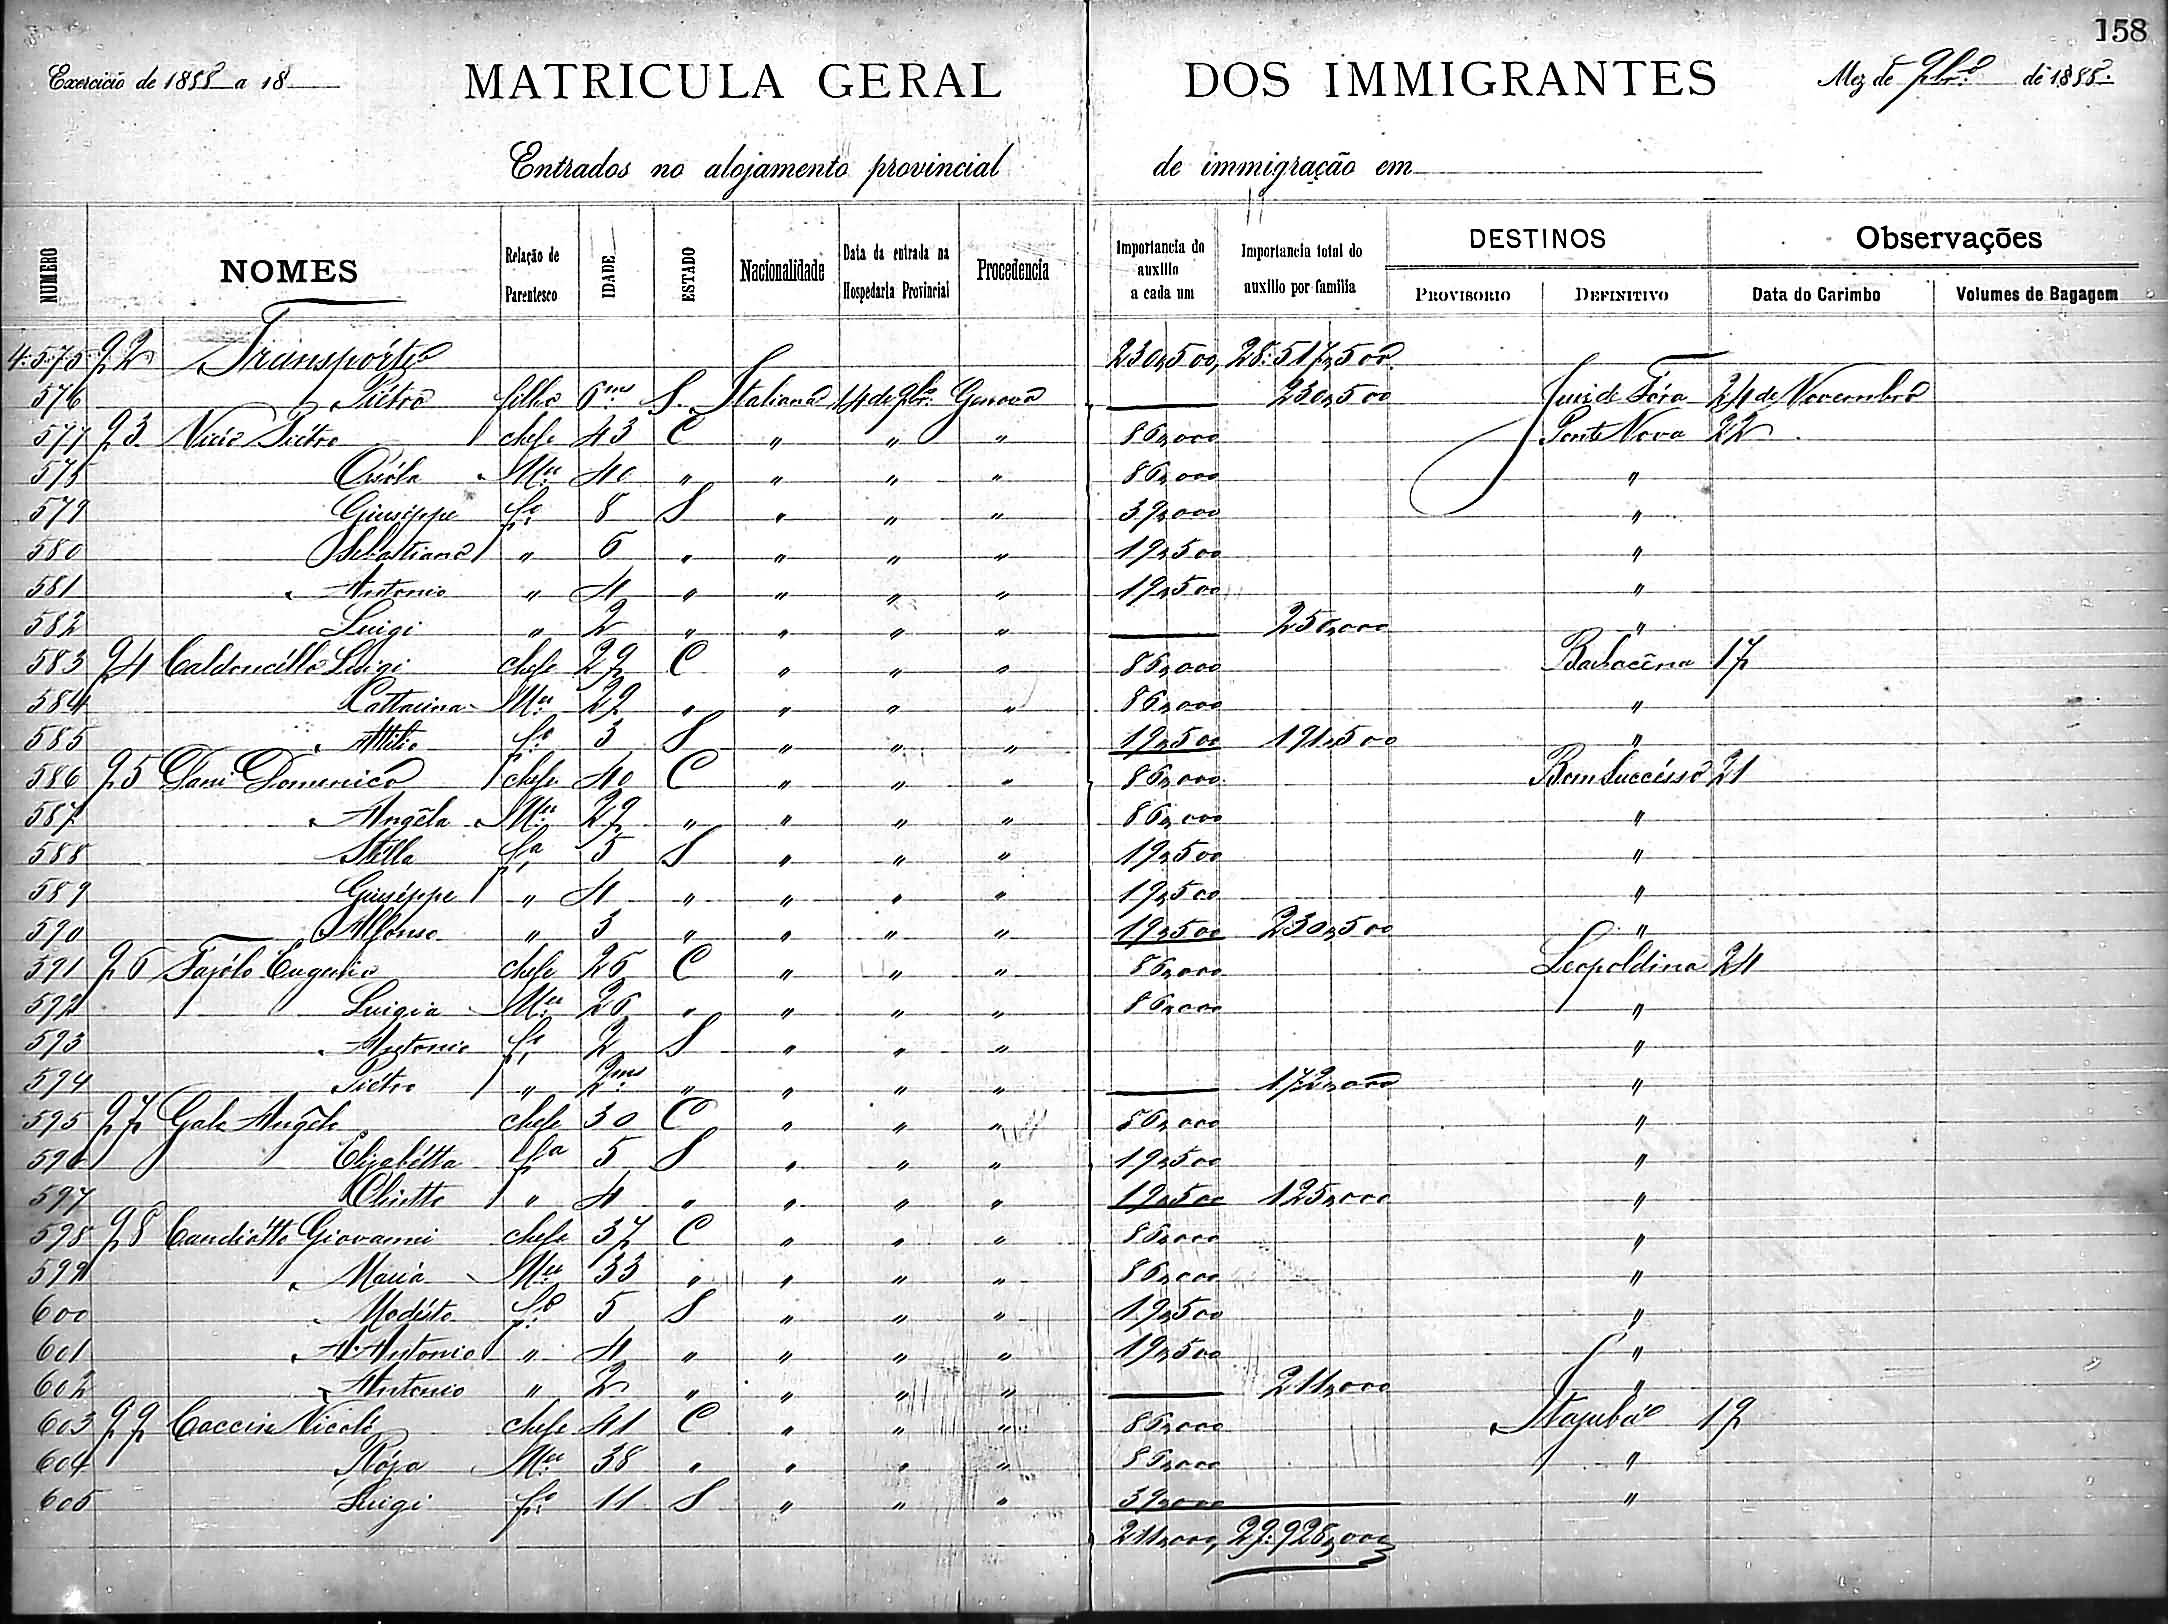 158
Exercicio de 1888 a 18
MATRICULA GERAL DOS IMMIGRANTES
Mez de 9br.º de 1888.
Entrados no alojamento provincial de immigração em
NUMERO NOMES Relação de Parentesco IDADE ESTADO Nacionalidade Data da entrada na Hospedaria Provincial Procedencia Importancia do auxilio a cada um Importancia total do auxilio por familia DESTINOS PROVISORIO DEFINITIVO Observações Data do Carimbo Volumes de Bagagem
4:575 92 Transpórte 230,500, 28:517,500
576 Piétro filho 6 ms S. Italiana 14 de 9br.º Genova — 230,500 Juiz de Fóra 24 de Novembro
577 93 Piétro chefe 43 C " " " 86,000 Ponte Nova 22
578 Mer 40 " " " " 86,000 "
579 Giuseppe fº 8 S " " " 39,000 "
580 Sebastiano " 6 " " " " 19,500 "
581 Antonio " 4 " " " " 19,500 "
582 Luigi " 2 " " " " — 250,000 "
583 94 Luigi chefe 29 C " " " 86,000 Barbacêna 17
584 Cattarina Mer 29 " " " " 86,000 "
585 Attilio fº 3 S " " " 19,500 191,500 "
586 95 Dani Domenico chefe 40 C " " " 86,000 Bom Succésso 21
587 Angéla Mer 29 " " " " 86,000 "
588 Stélla fª 5 S " " " 19,500 "
589 Giuséppe " 4 " " " " 19,500 "
590 Alfonso " 3 " " " " 19,500 230,500 "
591 96 Fajólo Eugenio chefe 26 C " " " 86,000 Leopoldina 24
592 Luigia Mer 26 " " " " 86,000 "
593 Antonio fº 2 S " " " "
594 Piétro " 2 ms " " " " — 172,000 "
595 97 Gale Angélo chefe 30 C " " " 86,000 "
596 Elizabétta fª 5 S " " " 19,500 "
597 " 4 " " " " 19,500 125,000 "
598 98 Candiótto Giovanni chefe 37 C " " " 86,000 "
599 Maria Mer 33 " " " " 86,000 "
600 Modésto fº 5 S " " " 19,500 "
601 M. Antonio " 4 " " " " 19,500 "
602 Antonio " 2 " " " " — 211,000 "
603 99 Caccin Nicoló chefe 41 C " " " 86,000 Itajubá 19
604 Róza Mer 38 " " " " 86,000 "
605 Luigi fº 11 S " " " 39,000 "
211,000, 29:928,000